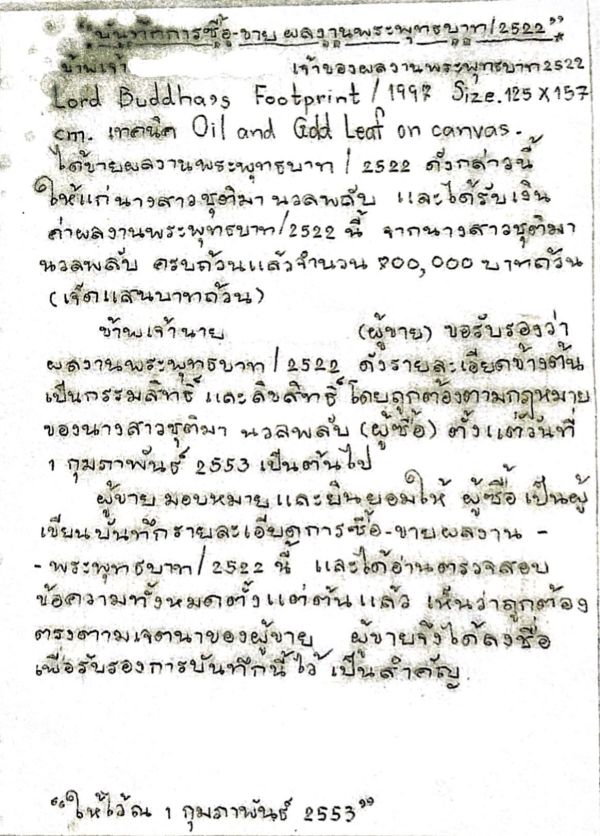 "บันทึกการซื้อ-ขาย ผลงานพระพุทธบาท/2522"
ข้าพเจ้า เจ้าของผลงานพระพุทธบาท2522
Lord Buddha's Footprint / 1997 Size. 125 X 157
cm. เทคนิค Oil and Gold Leaf on canvas.
ได้ขายผลงานพระพุทธบาท / 2522 ดังกล่าวนี้
ให้แก่นางสาวชุติมา นวลพลับ และได้รับเงิน
ค่าผลงานพระพุทธบาท/2522 นี้ จากนางสาวชุติมา
นวลพลับ ครบถ้วนแล้วจำนวน 700,000 บาทถ้วน
(เจ็ดแสนบาทถ้วน)
ข้าพเจ้านาย (ผู้ขาย) ขอรับรองว่า
ผลงานพระพุทธบาท / 2522 ดังรายละเอียดข้างต้น
เป็นกรรมสิทธิ์ และลิขสิทธิ์ โดยถูกต้องตามกฎหมาย
ของนางสาวชุติมา นวลพลับ (ผู้ซื้อ) ตั้งแต่วันที่
1 กุมภาพันธ์ 2553 เป็นต้นไป
ผู้ขาย มอบหมาย และยินยอมให้ ผู้ซื้อ เป็นผู้
เขียนบันทึกรายละเอียดการซื้อ-ขายผลงาน -
- พระพุทธบาท/2522 นี้ และได้อ่านตรวจสอบ
ข้อความทั้งหมดตั้งแต่ต้นแล้ว เห็นว่าถูกต้อง
ตรงตามเจตนาของผู้ขาย ผู้ขายจึงได้ลงชื่อ
เพื่อรับรองการบันทึกนี้ไว้ เป็นสำคัญ
"ให้ไว้ณ 1 กุมภาพันธ์ 2553"